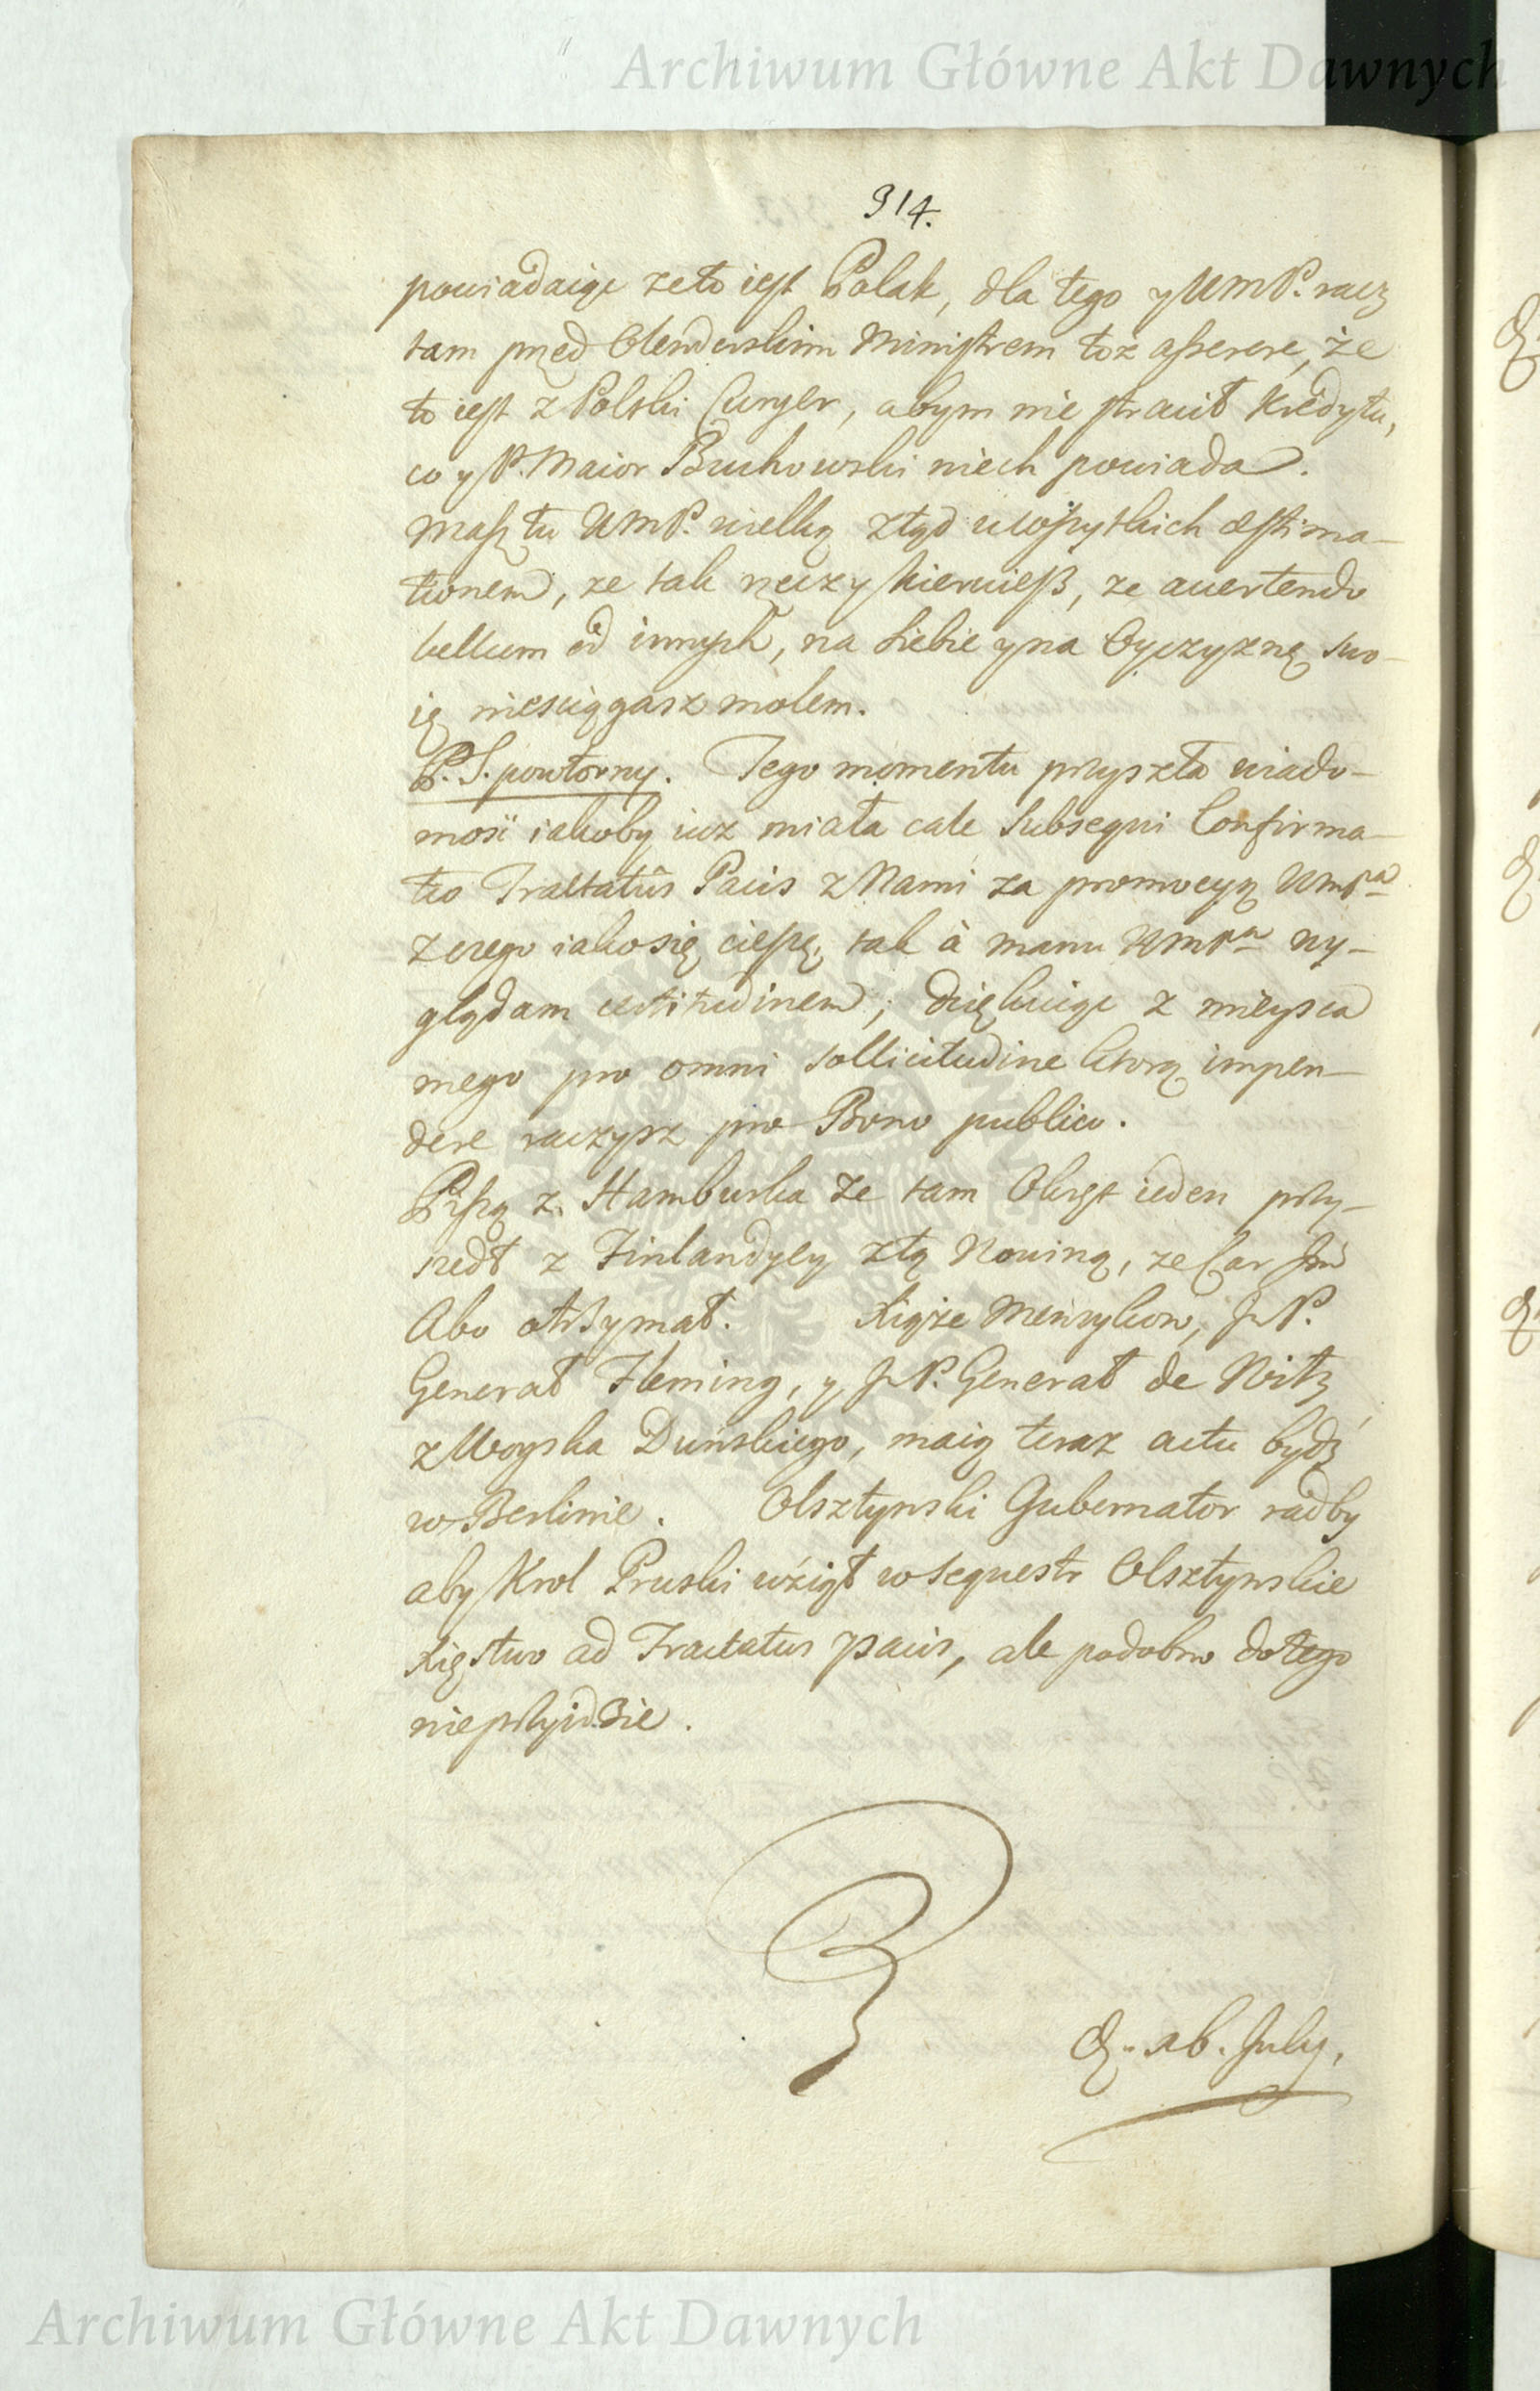 Archiwum Główne Akt Dawnych
314.
powiadaiąc zeto iest Polak, dla tego y WMP. racz
tam przed Olenderskim Ministrem toż asserere, że
to iest z Polski Curyer, abym nie stracił kredytu,
co y P. Maior Buchowski niech powiada.
Masz tu WMP. wielką ztąd u wszystkich æstima-
tionem, ze tak rzeczy kieruiesz, ze avertendo
bellum od innych, na siebie y na Oyczyznę swo-
ię niesciągasz molem.
P. S. powtorny. Tego momentu przyszła wiado-
mość iakoby iuz miała cale subsequi Confirma-
tio Tractatûs Pacis z Nami za promocyą WMPa
z czego iako się cieszę, tak à manu WMPa wy-
glądam certitudinem; dziękuiąc z mieysca
mego pro omni sollicitudine ktorą impen-
dere raczysz pro Bono publico.
Piszą z Hamburka ze tam Okręt ieden przy-
szedł z Finlandyey ztą Nowiną, ze Car Jmć
Abo otrzymał. Xiąże Menzykow, J P.
Generał Fleming, y J P. Generał de Witz
z Woyska Duńskiego, maią teraz actu bydź
w Berlinie. Olsztynski Gubernator radby
aby Krol Pruski wźiął w sequestr Olsztynskie
Xięstwo ad Tractatus pacis, ale podobno do tego
nieprzyidzie.
d. 26. July.
Archiwum Główne Akt Dawnych